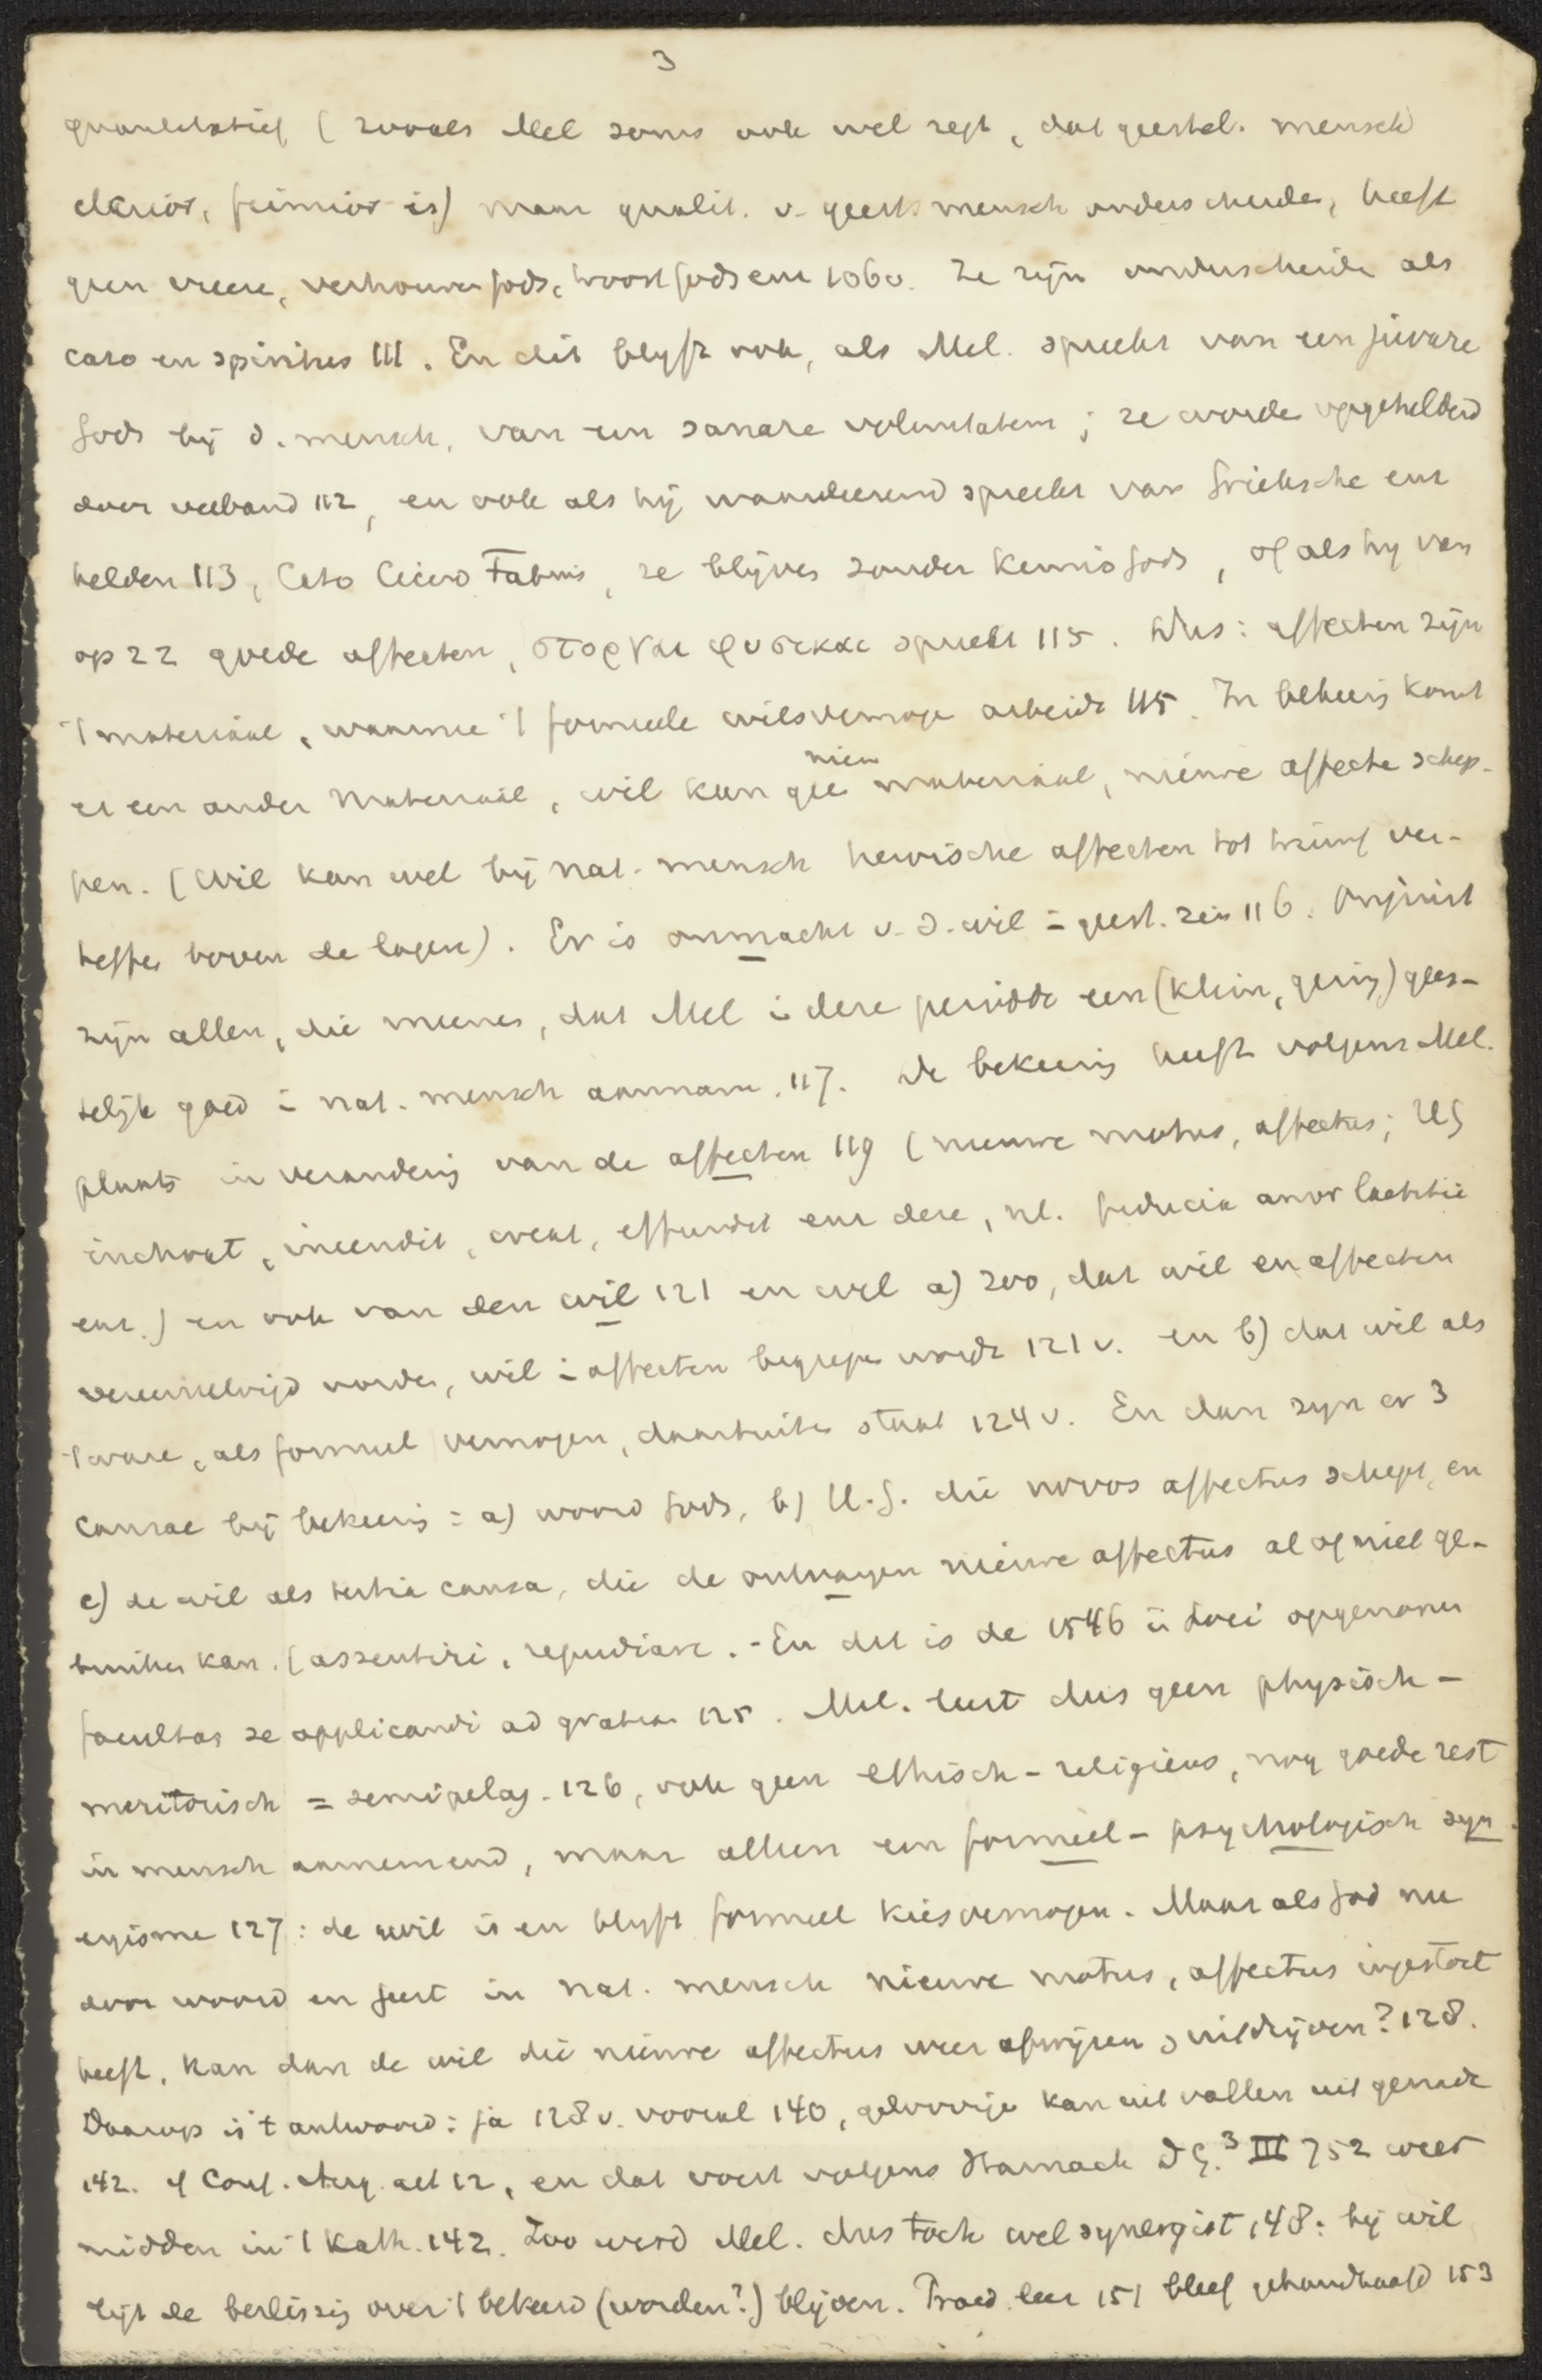 3
quantitatief (zooals Mel soms ook wel zegt, dat geestel. mensch
clarior, firmior is) maar qualit. v. geest. mensch onderscheide, heeft
geen vreeze, vertrouwen Gods, troost Gods enz 106v. Ze zijn onderscheide als
caro en spiritus 111. En dit blyft ook, als Mel. spreekt van een juvare
Gods bij d. mensch, van een sanare voluntatem; ze worde opgehelderd
door verband 112, en ook als hij waardeerend spreekt van Grieksche enz
helden 113, Cato Cicero Fabius, ze blijven zonder kennis Gods, of als hy van
op zz goede affecten, στοργαι φυσικαι spreekt 115. Dus: affecten zijn
't materiaal, waarmee 't formeele wilsvermoge arbeidt 115. In bekeerg komt
er een ander materiaal, wil kan gee nieu materiaal, nieuwe affecte schep-
pen. (Wil kan wel bij nat. mensch heroische affecten tot triumf ver-
heffen boven de lagere). Er is onmacht v. d. wil in geest. zin 116. Onjuist
zijn allen, die meenen, dat Mel in deze periode een (klein, gering) gees-
telijk goed in nat. mensch aannam. 117. De bekeerig heeft volgens Mel.
plaats in veranderig van de affecten 119 (nieuwe motus, affectus; HG
inchoat, incendit, creat, effundit enz deze, nl. fiducia amor laetitia
enz.) en ook van den wil 121 en wel a) zoo, dat wil en affecten
vereenzelvigd worden, wil in affecten begrepen wordt 121v. en b) dat wil als
't ware, als formeel vermogen, daarbuiten staat 124v. En dan zyn er 3
causae bij bekeerig: a) woord Gods, b) H.G. die novos affectus schept, en
c) de wil als tertia causa, die de ontvangen nieuwe affectus al of niet ge-
bruiken kan. (assentiri, repudiare. - En dit is de 1546 in Loci opgenomen
facultas se applicandi ad gratiam 125. Mel. leert dus geen physisch-
meritorisch = semipelag. 126, ook geen ethisch-religieus, nog goede rest
in mensch aannemend, maar alleen een formeel-psychologisch syn
ergisme 127: de wil is en blyft formeel kiesvermogen. Maar als God nu
door woord en Geest in nat. mensch nieuwe motus, affectus ingestort
heeft, kan dan de wil die nieuwe affectus weer afwijzen, uitdrijven? 128.
Daarop is 't antwoord: ja 128v. vooral 140, geloovige kan uit vallen uit genade
142. cf Conf. Aug. art 12, en dat voert volgens Harnack DG.³ III 752 weer
midden in 't Kath. 142. Zoo werd Mel. dus toch wel synergist 148: bij wil
ligt de beslissig over 't bekeerd (worden?) blijven. Praed. leer 151 bleef gehandhaafd 153